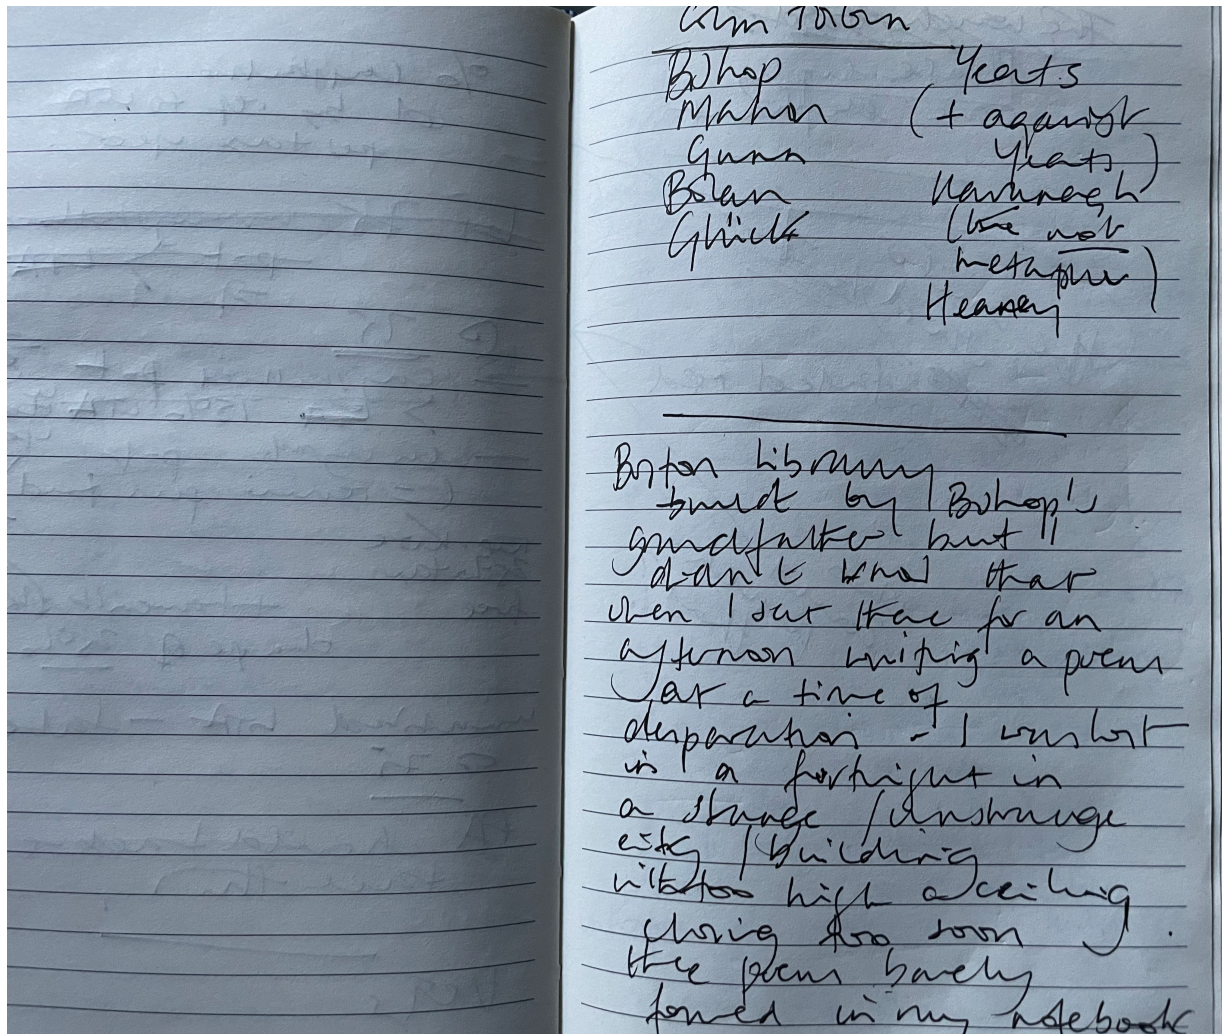 Colm Tóibín
Bishop Yeats
Mahon (+ against
Gunn Yeats)
Boland Kavanagh
Glück (tone not
metaphor)
Heaney
Boston Library
built by Bishop's
grandfather but I
didn't know that
when I sat there for an
afternoon writing a poem
at a time of
desparation - I was lost
in a fortnight in
a strange / unstrange
city / building
with too high a ceiling
closing too soon
the poem barely
formed in my notebook